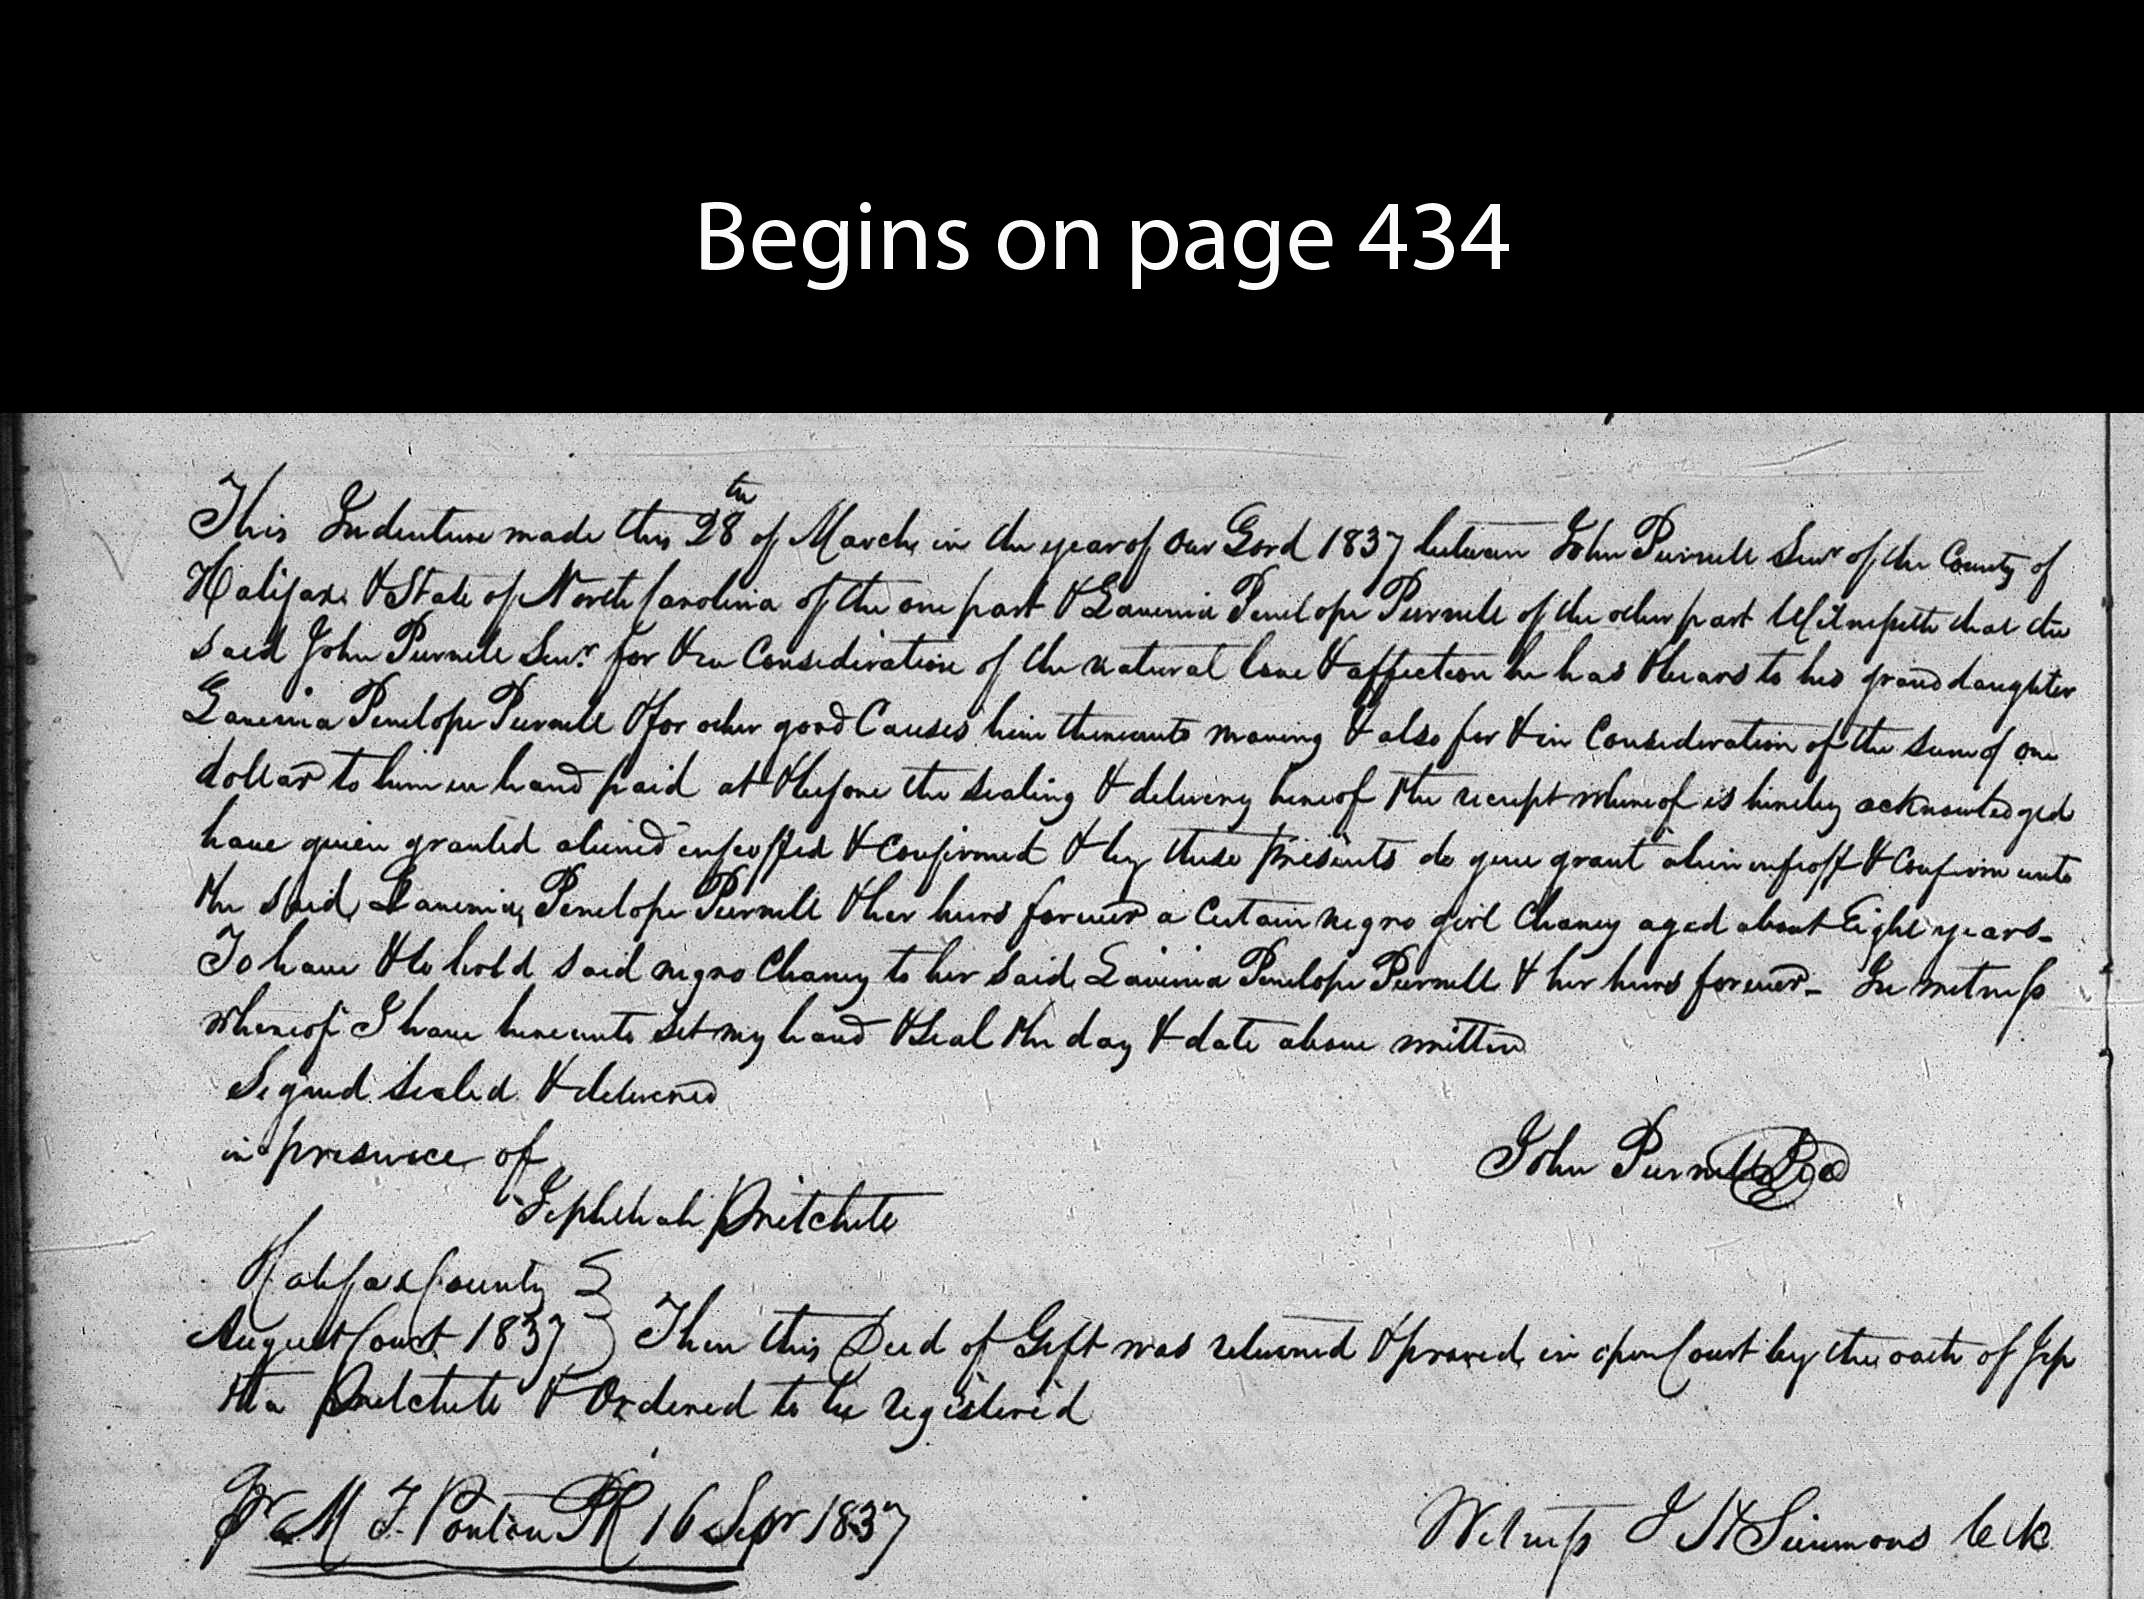 Begins on page 434
This Indenture made this 28th of March in the year of our Lord 1837 between John Purnell Senr of the County of
Halifax & State of North Carolina of the one part & Lavenia Penelope Purnell of the other part Witnesseth that the
said John Purnell Senr. for & in Consideration of the natural love & affection he has & bears to his grand daughter
Lavenia Penelope Purnell & for other good Causes him thereunto moving & also for & in Consideration of the sum of one
dollar to him in hand paid at & before the sealing & delivery hereof the receipt whereof is hereby acknowledged
have given granted aliened enfeoffed & Confirmed & by these presents do give grant alien enfeoff & Confirm unto
the said Lavenia Penelope Purnell & her heirs forever a Certain negro girl Chaney aged about Eight years-
To have & to hold said negro Chaney to her said Lavinia Penelope Purnell & her heirs forever- In witness
whereof I have hereunto set my hand & seal the day & date above written
Signed sealed & delivered
in presence of
John Purnell
Jephthah Pritchett
Halifax County
August Court 1837 } Then this Deed of Gift was returned & proved in open Court by the oath of Jep
tha Pritchett & Ordered to be registered
Pr M F. Ponton PR 16 Sepr 1837
Witness J H Simmons Clk